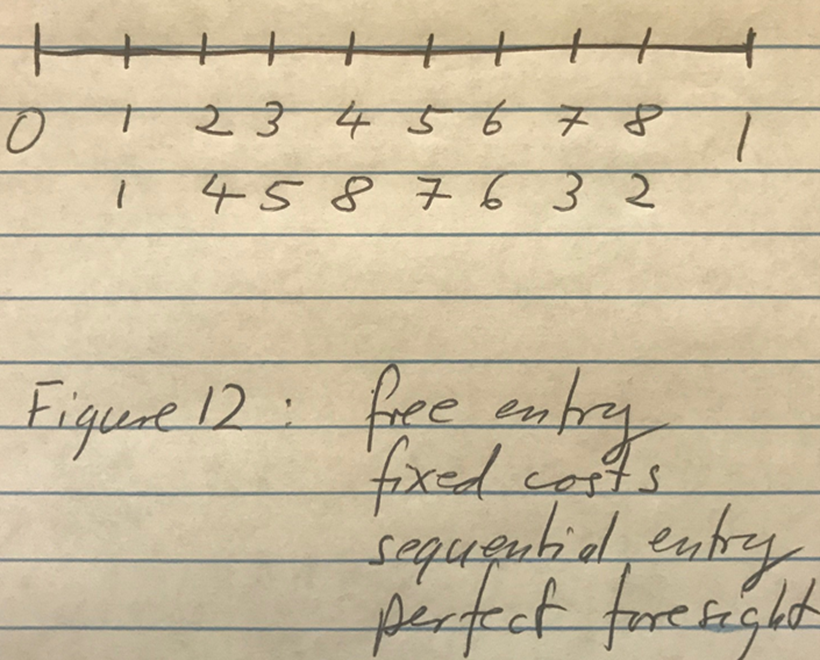 0 1 2 3 4 5 6 7 8 1
1 4 5 8 7 6 3 2
Figure 12 : free entry
fixed costs
sequential entry
perfect foresight